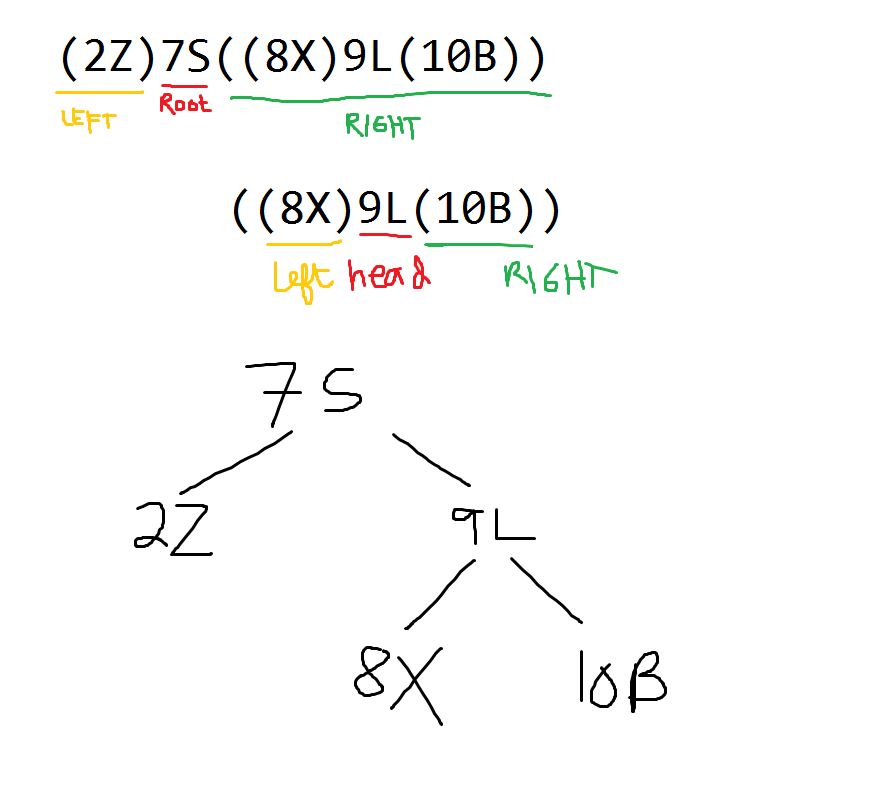 (2Z)7S((8X)9L(10B))
LEFT Root RIGHT
((8X)9L(10B))
Left head RIGHT
7S
2Z 9L
8X 10B